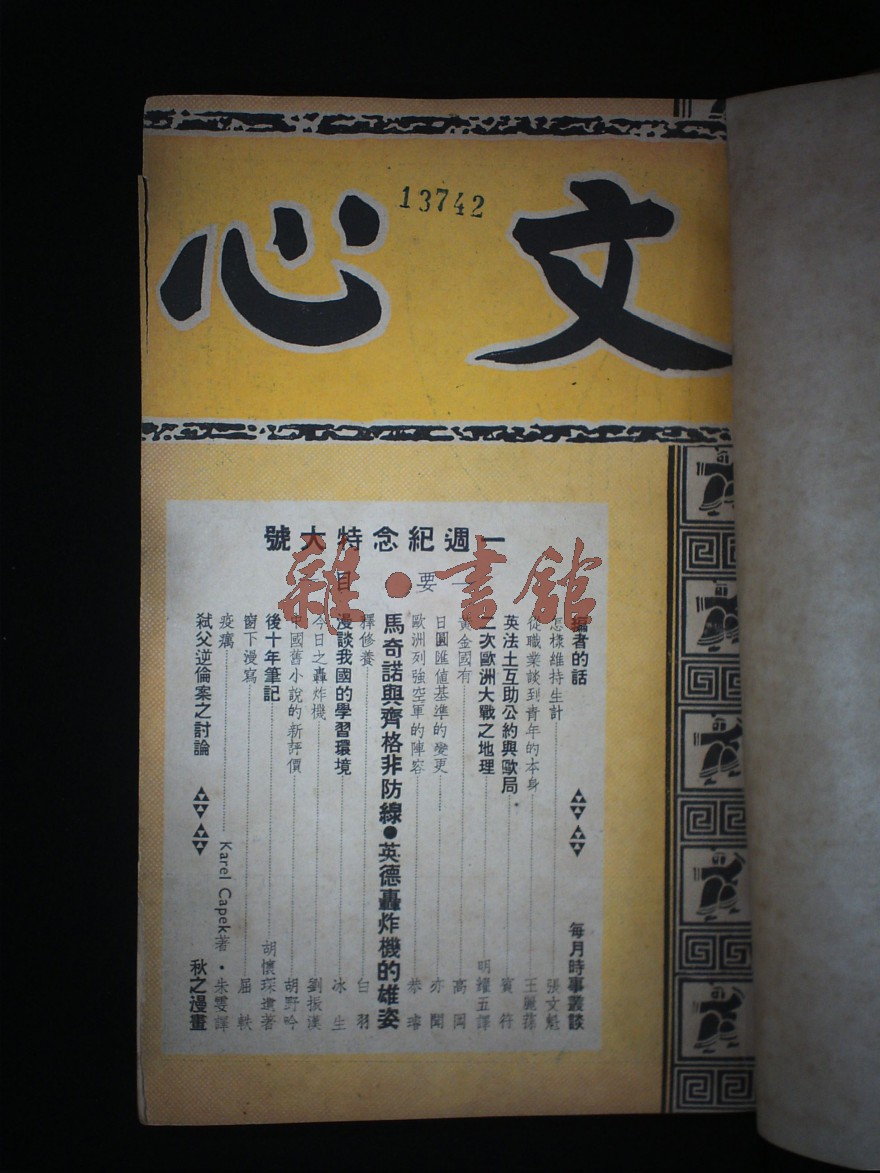 文心
13742
一週紀念特大號
要目
編者的話
每月時事叢談
怎樣維持生計 張文魁
從職業談到青年的本身 王麗蓀
英法土互助公約與歐局 賓符
二次歐洲大戰之地理 明耀五譯
黃金國有 高岡
日圓匯值基準的變更 亦聞
歐洲列強空軍的陣容 恭瑋
馬奇諾與齊格非防線●英德轟炸機的雄姿
釋修養 白羽
漫談我國的學習環境 冰生
今日之轟炸機 劉振漢
中國舊小說的新評價 胡野吟
後十年筆記 胡懷琛遺著
窗下漫寫 屈軼
疫癘 Karel Capek著・朱雯譯
弒父逆倫案之討論
秋之漫畫
雜・書館